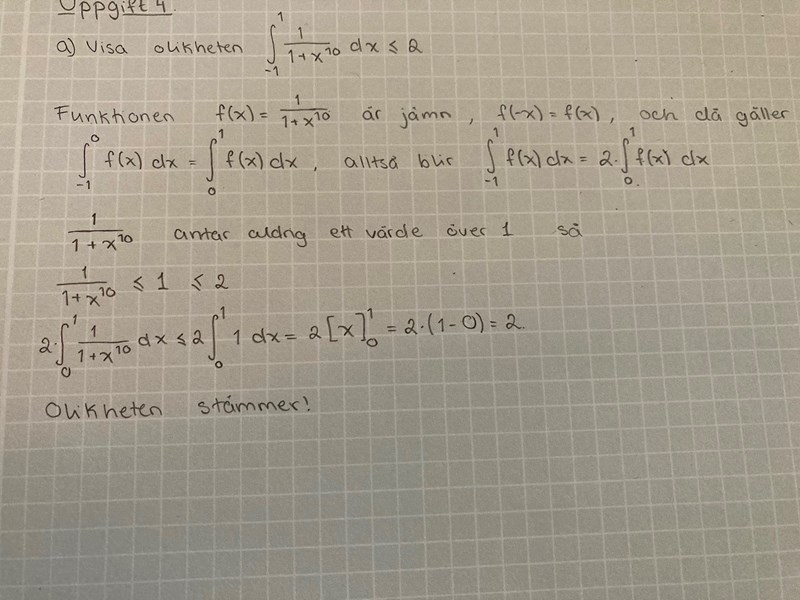 Uppgift 4.
a) Visa olikheten ∫₋₁¹ 1/(1+x¹⁰) dx ≤ 2
Funktionen f(x) = 1/(1+x¹⁰) är jämn, f(-x) = f(x), och då gäller
∫₋₁⁰ f(x) dx = ∫₀¹ f(x) dx, alltså blir ∫₋₁¹ f(x) dx = 2·∫₀¹ f(x) dx
1/(1+x¹⁰) antar aldrig ett värde över 1 så
1/(1+x¹⁰) ≤ 1 ≤ 2
2·∫₀¹ 1/(1+x¹⁰) dx ≤ 2 ∫₀¹ 1 dx = 2[x]₀¹ = 2·(1-0) = 2
Olikheten stämmer!